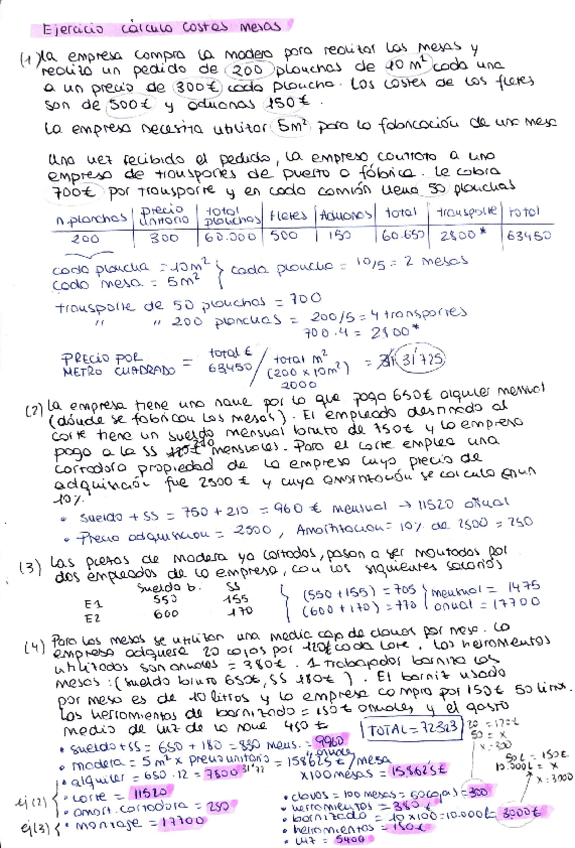 Ejercicio cálculo costes mesas
(1) La empresa compra la madera para realizar las mesas y
realiza un pedido de 200 planchas de 10 m² cada una
a un precio de 300€ cada plancha. Los costes de los fletes
son de 500€ y aduanas 150€.
La empresa necesita utilizar 5m² para la fabricación de una mesa
Una vez recibido el pedido, la empresa contrata a una
empresa de transportes de puerto a fábrica. Le cobra
700€ por transporte y en cada camión lleva 50 planchas
n.planchas | precio unitario | total planchas | Fletes | Aduanas | total | transporte | total
200 | 300 | 60.000 | 500 | 150 | 60.650 | 2800* | 63450
cada plancha = 10m²
cada mesa = 5m²
cada plancha = 10/5 = 2 mesas
transporte de 50 planchas = 700
" " 200 planchas = 200/5 = 4 transportes
700·4 = 2800*
PRECIO POR METRO CUADRADO = total € 63450 / total m² (200 x 10m²) 2000 = 31'725
(2) La empresa tiene una nave por lo que paga 650€ alquiler mensual
(dónde se fabrican las mesas). El empleado destinado al
corte tiene un sueldo mensual bruto de 750€ y la empresa
paga a la SS 210 mensuales. Para el corte emplea una
cortadora propiedad de la empresa cuyo precio de
adquisición fue 2500€ y cuya amortización se calcula en un
10%.
• Sueldo + SS = 750 + 210 = 960 € mensual → 11520 anual
• Precio adquisicion = 2500, Amortización = 10% de 2500 = 250
(3) Las piezas de madera ya cortadas, pasan a ser montadas por
dos empleados de la empresa, con los siguientes salarios
Sueldo b. SS
E1 550 155
E2 600 170
(550 + 155) = 705
(600 + 170) = 770
mensual = 1475
anual = 17700
(4) Para las mesas se utilizan una media caja de clavos por mesa. La
empresa adquiere 20 cajas por 120€ cada lote. Las herramientas
utilizadas son anuales = 380€. 1 trabajador barniza las
mesas: (sueldo bruto 650€, SS 180€). El barniz usado
por mesa es de 10 litros y la empresa compra por 150€ 50 litros.
Las herramientas de barnizado = 150€ anuales y el gasto
medio de luz de la nave 450€
TOTAL = 72323
• sueldo + SS = 650 + 180 = 830 mens. = 9960 anuales
• madera = 5 m² x precio unitario 31'72 = 158'625€/mesa
x100 mesas = 15862'5€
• alquiler = 650·12 = 7800
ej(2) • corte = 11520
• amort. cortadora = 250
ej(3) • montaje = 17700
• clavos = 100 mesas = 50 cajas = 300
• herramientos = 380€
• barnizado = 10x100 = 10.000L = 3000€
• herramientos = 150€
• luz = 5400
50 = x
x = 300
50L = 150€
10.000L = x
x = 3000